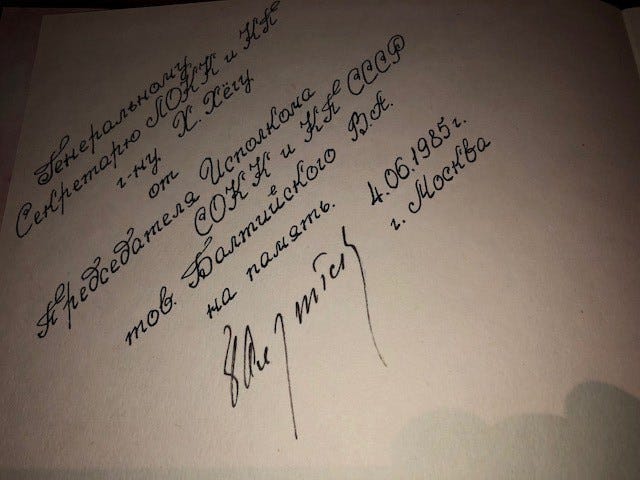 Генеральному
Секретарю ЛОКК и КП
г-ну Х. Хёгу
от
Председателя Исполкома
СОКК и КП СССР
тов. Балтийского В.А.
на память. 4.06.1985г.
г. Москва